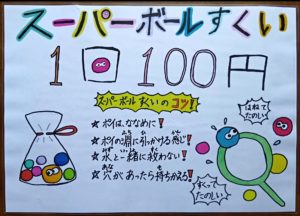 スーパーボールすくい
1回 100円
スーパーボールすくいのコツ!
★ ポイは、ななめに!
★ ポイの淵に引っかける感じ!
★ 水と一緒に救わない!
★ 穴があったら持ちかえろ!
はねて
たのしい
すくって
たのしい